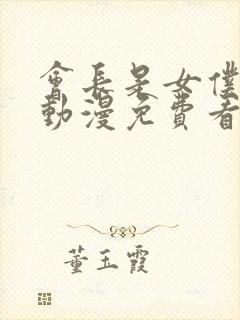 會長是女僕
動漫免費看
董玉霞